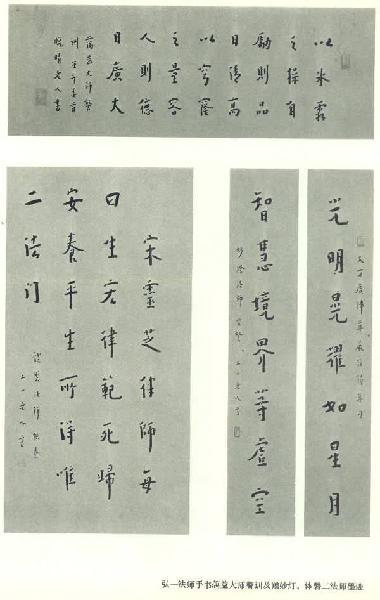 以冰霜
之操自
勵則品
日清高
以穹窿
之量容
人則德
日廣大
蕅益大師警
訓
晚晴老人書
光明晃耀如星月
大方廣佛華嚴經
智慧境界等虛空
妙燈法師
宋靈芝律師每
曰生宏律範死歸
安養平生所得唯
二法门
弘一法师手书蕅益大师警训及赠妙灯、体磬二法师墨迹